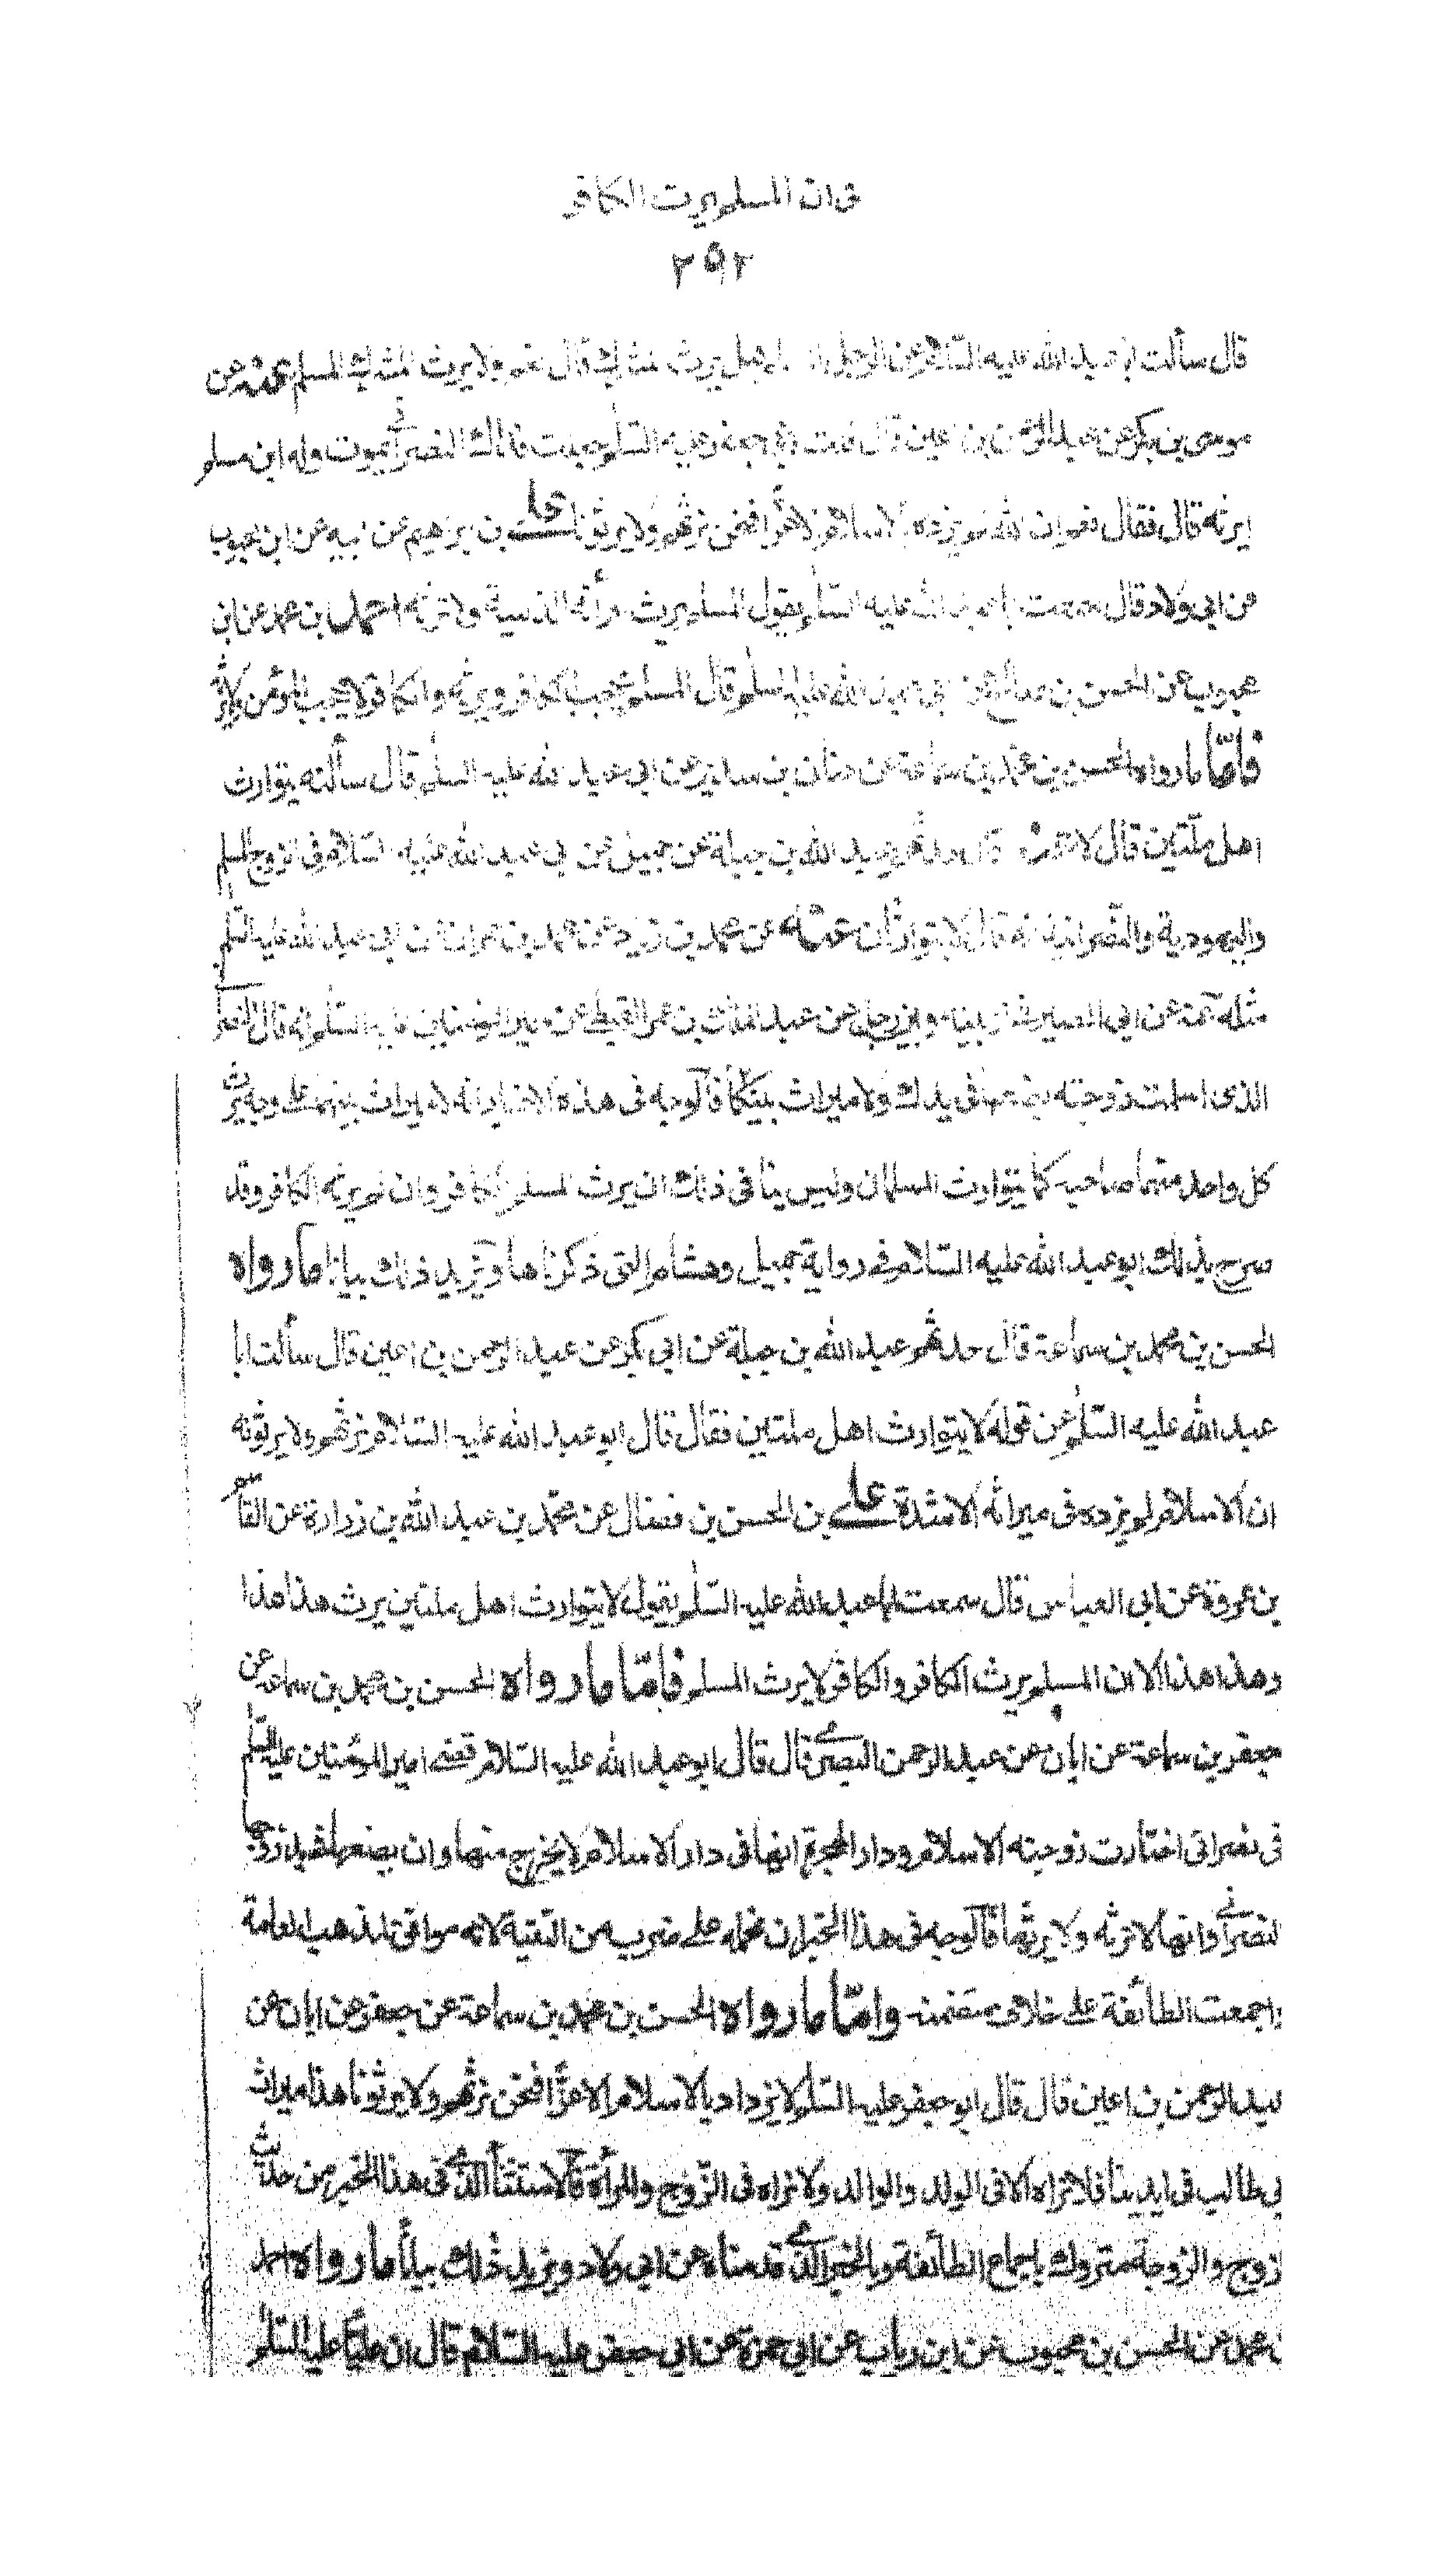 فى ان المسلم يرث الكافر
٢٥٢
قال سألت ابا عبد الله عليه السّلام عن الرجل المسلم هل يرث المشرك قال نعم ولا يرث المشرك المسلم عنه عن
موسى بن بكر عن عبد الرحمن بن اعين قال قلت لابى جعفر عليه السّلم جعلت فداك النصرانى يموت وله ابن مسلم
ايرثه قال فقال نعم ان الله لم يزده بالاسلام الا عزّا فنحن نرثهم ولا يرثونا على بن ابرهيم عن ابيه عن ابن محبوب
عن ابى ولاد قال سمعت ابا عبد الله عليه السّلم يقول المسلم يرث امرأته الذمية ولا ترثه احمد بن محمد عن ابن
محبوب عن الحسن بن صالح عن ابى عبد الله عليه السلم قال المسلم يحجب الكافر ويرثه والكافر لا يحجب المؤمن ولا يرثه
فامّا ما رواه الحسن بن محمّد بن سماعة عن حنان بن سدير عن ابى عبد الله عليه السلم قال سألته يتوارث
اهل ملّتين قال لا عنه قال حدثهم عبد الله بن جبلة عن جميل عن ابى عبد الله عليه السّلام فى الزوج المسلم
واليهودية والنّصرانية انه قال لا يتوارثان عنه عن محمد بن زياد عن محمد بن حمران عن ابى عبد الله عليه السّلم
مثله عنه عن ابى عبد الملك بن عمر القبطى عن امير المؤمنين عليه السّلم انه قال للنصرانى
الذى اسلمت زوجته بضعها فى يدك ولا ميراث بينكما فالوجه فى هذه الاخبار انه لا ميراث بينهما على وجه يرث
كل واحد منهما صاحبه كما يتوارث المسلمان وليس ينافى ذلك ان يرث المسلم الكافر وان لم يرثه الكافر وقد
صرح بذلك ابو عبد الله عليه السّلام فى رواية جميل وهشام التى ذكرناها ويزيد ذلك بيانا ما رواه
الحسن بن محمد بن سماعة قال حدثهم عبد الله بن جبلة عن ابى بكر عن عبد الرحمن بن اعين قال سألت ابا
عبد الله عليه السّلم عن قوله لا يتوارث اهل ملتين فقال قال ابو عبد الله عليه السّلام نرثهم ولا يرثونه
ان الاسلام لم يزده فى ميراثه الا شدة على بن الحسن بن فضال عن محمّد بن عبد الله بن زرارة عن القاسم
بن عروة عن ابى العباس قال سمعت ابا عبد الله عليه السّلم يقول لا يتوارث اهل ملتين يرث هذا هذا
وهذا هذا الا ان المسلم يرث الكافر والكافر لا يرث المسلم فامّا ما رواه الحسن بن محمد بن سماعة عن
جعفر بن سماعة عن ابان عن عبد الرحمن البصرى قال قال ابو عبد الله عليه السّلام قضى امير المؤمنين عليه السّلم
فى نصرانى اختارت زوجته الاسلام ودار الهجرة انها فى دار الاسلام لا يخرج منها وان بضعها فى يد زوجها
النصرانى وانها لا ترثه ولا يرثها فالوجه فى هذا الخبر ان نحمله على ضرب من التقية لانه موافق لمذهب العامة
واجمعت الطائفة على خلاف متضمنه وامّا ما رواه الحسن بن محمد بن سماعة عن جعفر عن ابان عن
عبد الرحمن بن اعين قال قال ابو جعفر عليه السّلم لا يزداد بالاسلام الا عزّا فنحن نرثهم ولا يرثونا هذا ميراث
ابى طالب فى ايدينا فلا نراه الا فى الولد والوالد ولا نراه فى الزّوج والمرأة فالاستثنأ الذى فى هذا الخبر من حديث
الزوج والزوجة متروك باجماع الطائفة وبالخبر الذى قدمناه عن ابى ولاد ويزيد ذلك بيانا ما رواه احمد
بن محمد عن الحسن بن محبوب عن ابن رياب عن ابى حمزة عن ابى جعفر عليه السّلام قال ان عليّا عليه السّلم